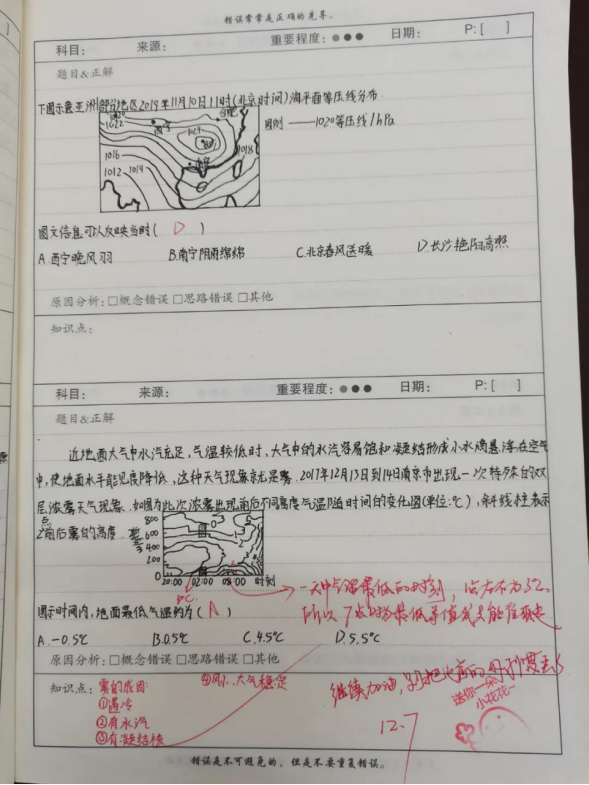 错误常常是正确的先导。
科目： 来源： 重要程度： 日期： P:[ ]
题目&正解
下图示意亚洲部分地区2019年11月10日11时(北京时间)海平面等压线分布
1020
1022
西宁
合肥
1024
长沙
1018
南宁
1016
1012 1014
图例 ——1020等压线/hPa
图文信息可以反映当时( D )
A.西宁晚风羽 B.南宁阴雨绵绵 C.北京春风送暖 D.长沙艳阳高照
原因分析：□概念错误 □思路错误 □其他
知识点：
科目： 来源： 重要程度： 日期： P:[ ]
题目&正解
近地面大气中水汽充足,气温较低时,大气中的水汽容易饱和凝结形成小水滴悬浮在空气
中,使地面水平能见度降低,这种天气现象就是雾.2017年12月13日到14日南京市出现一次特殊的双
层浓雾天气现象.如图为此次浓雾出现前后不同高度气温随时间的变化图(单位:℃),斜线柱表示
2点前后雾的高度.
800
600
400
200
0
20:00 02:00 08:00 时刻
一天中气温最低的时刻
所以7点
图示时间内,地面最低气温约为( A )
A.-0.5℃ B.0.5℃ C.4.5℃ D.5.5℃
原因分析：□概念错误 □思路错误 □其他
知识点：雾的成因 ④风小、大气稳定
①遇冷
②有水汽
③有凝结核
继续加油,
送你一朵
小花花~
12.7
错误是不可避免的，但是不要重复错误。